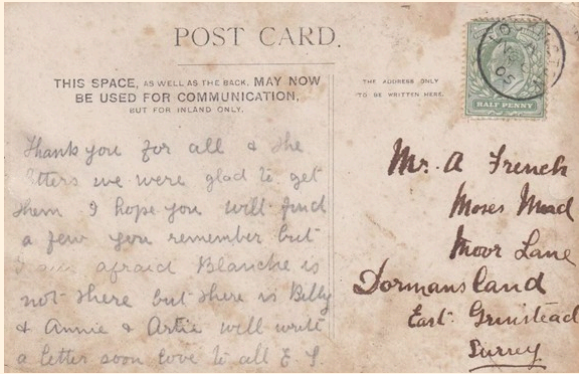 POST CARD.
THIS SPACE, AS WELL AS THE BACK, MAY NOW
BE USED FOR COMMUNICATION,
BUT FOR INLAND ONLY.
THE ADDRESS ONLY
TO BE WRITTEN HERE.
HALF PENNY
05
Thank you for all & the
letters we were glad to get
them I hope you will find
a few you remember but
I am afraid Blanche is
not there but there is Billy
& Annie & Artie will write
a letter soon love to all E.
Mr. A French
Moses Mead
Moor Lane
Dormansland
East Grinstead
Surrey